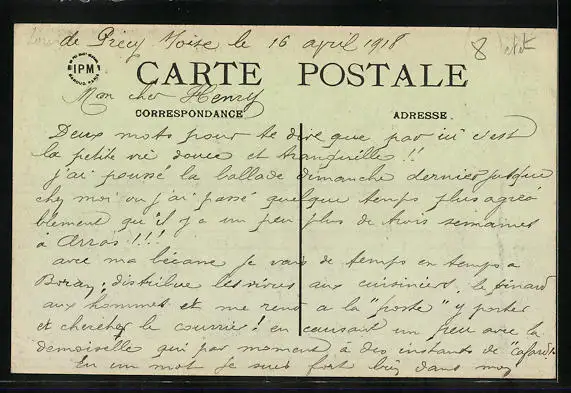 de Précy s/oise le 16 avril 1918
8
IPM
CARTE POSTALE
Mon cher Henry
CORRESPONDANCE
ADRESSE.
Deux mots pour te dire que par ici c'est
la petite vie douce et tranquille!!
j'ai poussé la ballade dimanche dernier jusque
chez moi ou j'ai passé quelque temps plus agréa
blement qu'il y a un peu plus de trois semaines
à Arras!!!
avec ma bécane je vais de temps en temps a
Boran, distribue les vivres aux cuisiniers, le pinard
aux hommes et me rend a la "poste" y porter
et chercher le courrier! en causant un peu avec la
demoiselle qui par moment à des instants de "cafard"!
En un mot je suis fort bien dans mon